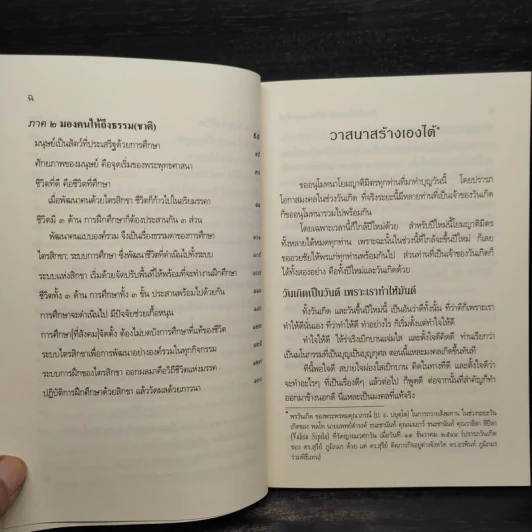 ฉ
ภาค ๒ มองคนให้ถึงธรรม(ชาติ)
มนุษย์เป็นสัตว์ที่ประเสริฐด้วยการศึกษา
ศักยภาพของมนุษย์ คือจุดเริ่มของพระพุทธศาสนา
ชีวิตที่ดี คือชีวิตที่ศึกษา
เมื่อพัฒนาคนด้วยไตรสิกขา ชีวิตก็ก้าวไปในอริยมรรคา
ชีวิตมี ๓ ด้าน การฝึกศึกษาก็ต้องประสานกัน ๓ ส่วน
พัฒนาคนแบบองค์รวม จึงเป็นเรื่องธรรมดาของการศึกษา
ไตรสิกขา: ระบบการศึกษา ซึ่งพัฒนาชีวิตที่ดำเนินไปทั้งระบบ
ระบบแห่งสิกขา เริ่มด้วยจัดปรับพื้นที่ให้พร้อมที่จะทำงานฝึกศึกษา
ชีวิตทั้ง ๓ ด้าน การศึกษาทั้ง ๓ ชั้น ประสานพร้อมไปด้วยกัน
การศึกษาจะดำเนินไป มีปัจจัยช่วยเกื้อหนุน
การศึกษา[ที่สังคม]จัดตั้ง ต้องไม่บดบังการศึกษาที่แท้ของชีวิต
ระบบไตรสิกขาเพื่อการพัฒนาอย่างองค์รวมในทุกกิจกรรม
ระบบการฝึกของไตรสิกขา ออกผลมาคือวิถีชีวิตแห่งมรรค
ปฏิบัติการฝึกศึกษาด้วยสิกขา แล้ววัดผลด้วยภาวนา
วาสนาสร้างเองได้*
ขออนุโมทนาโยมญาติมิตรทุกท่านที่มาทำบุญวันนี้ โดยปรารภ
โอกาสมงคลในช่วงวันเกิด ที่จริงระยะนี้มีหลายท่านที่เป็นเจ้าของวันเกิด
ก็ขออนุโมทนารวมไปพร้อมกัน
โดยเฉพาะเวลานี้ก็ใกล้ปีใหม่ด้วย สำหรับปีใหม่นี้โยมญาติมิตร
ทั้งหลายได้หมดทุกท่าน เพราะฉะนั้นในช่วงนี้ที่ใกล้จะขึ้นปีใหม่ ก็เลย
ขออวยชัยให้พรแก่ทุกท่านพร้อมกันไป ส่วนท่านที่เป็นเจ้าของวันเกิดก็
ได้ทั้งสองอย่าง คือทั้งปีใหม่และวันเกิดด้วย
วันเกิดเป็นวันดี เพราะเราทำให้มันดี
ทั้งวันเกิด และวันขึ้นปีใหม่นี้ เป็นอันว่าดีทั้งนั้น ที่ว่าดีก็เพราะเรา
ทำให้ดีนั่นเอง ที่ว่าทำให้ดี ทำอย่างไร ก็เริ่มตั้งแต่ทำใจให้ดี
ทำใจให้ดี ให้ร่าเริงเบิกบานแจ่มใส และตั้งใจดีคิดดี ท่านเรียกว่า
เป็นมโนกรรมที่เป็นบุญเป็นกุศล ตอนนี้แหละมงคลเกิดขึ้นทันที
ทีนี้พอใจดี สบายใจผ่องใสเบิกบาน คิดในทางที่ดี และตั้งใจดีว่า
จะทำอะไรๆ ที่เป็นเรื่องดีๆ แล้วต่อไป ก็พูดดี ต่อจากนั้นที่สำคัญก็ทำ
ออกมาข้างนอกดี นี่แหละเป็นมงคลที่แท้จริง